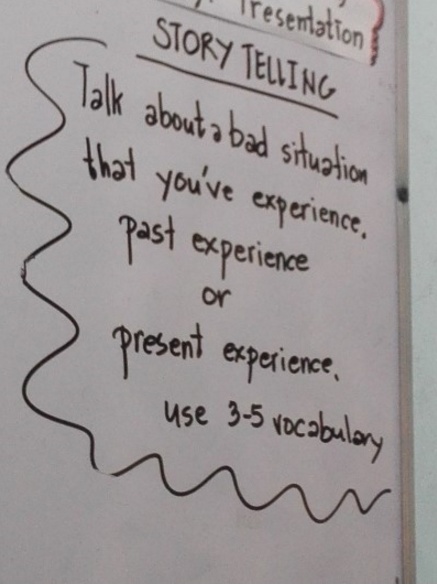 Presentation
STORY TELLING
Talk about a bad situation
that you've experience.
past experience
or
present experience.
use 3-5 vocabulary